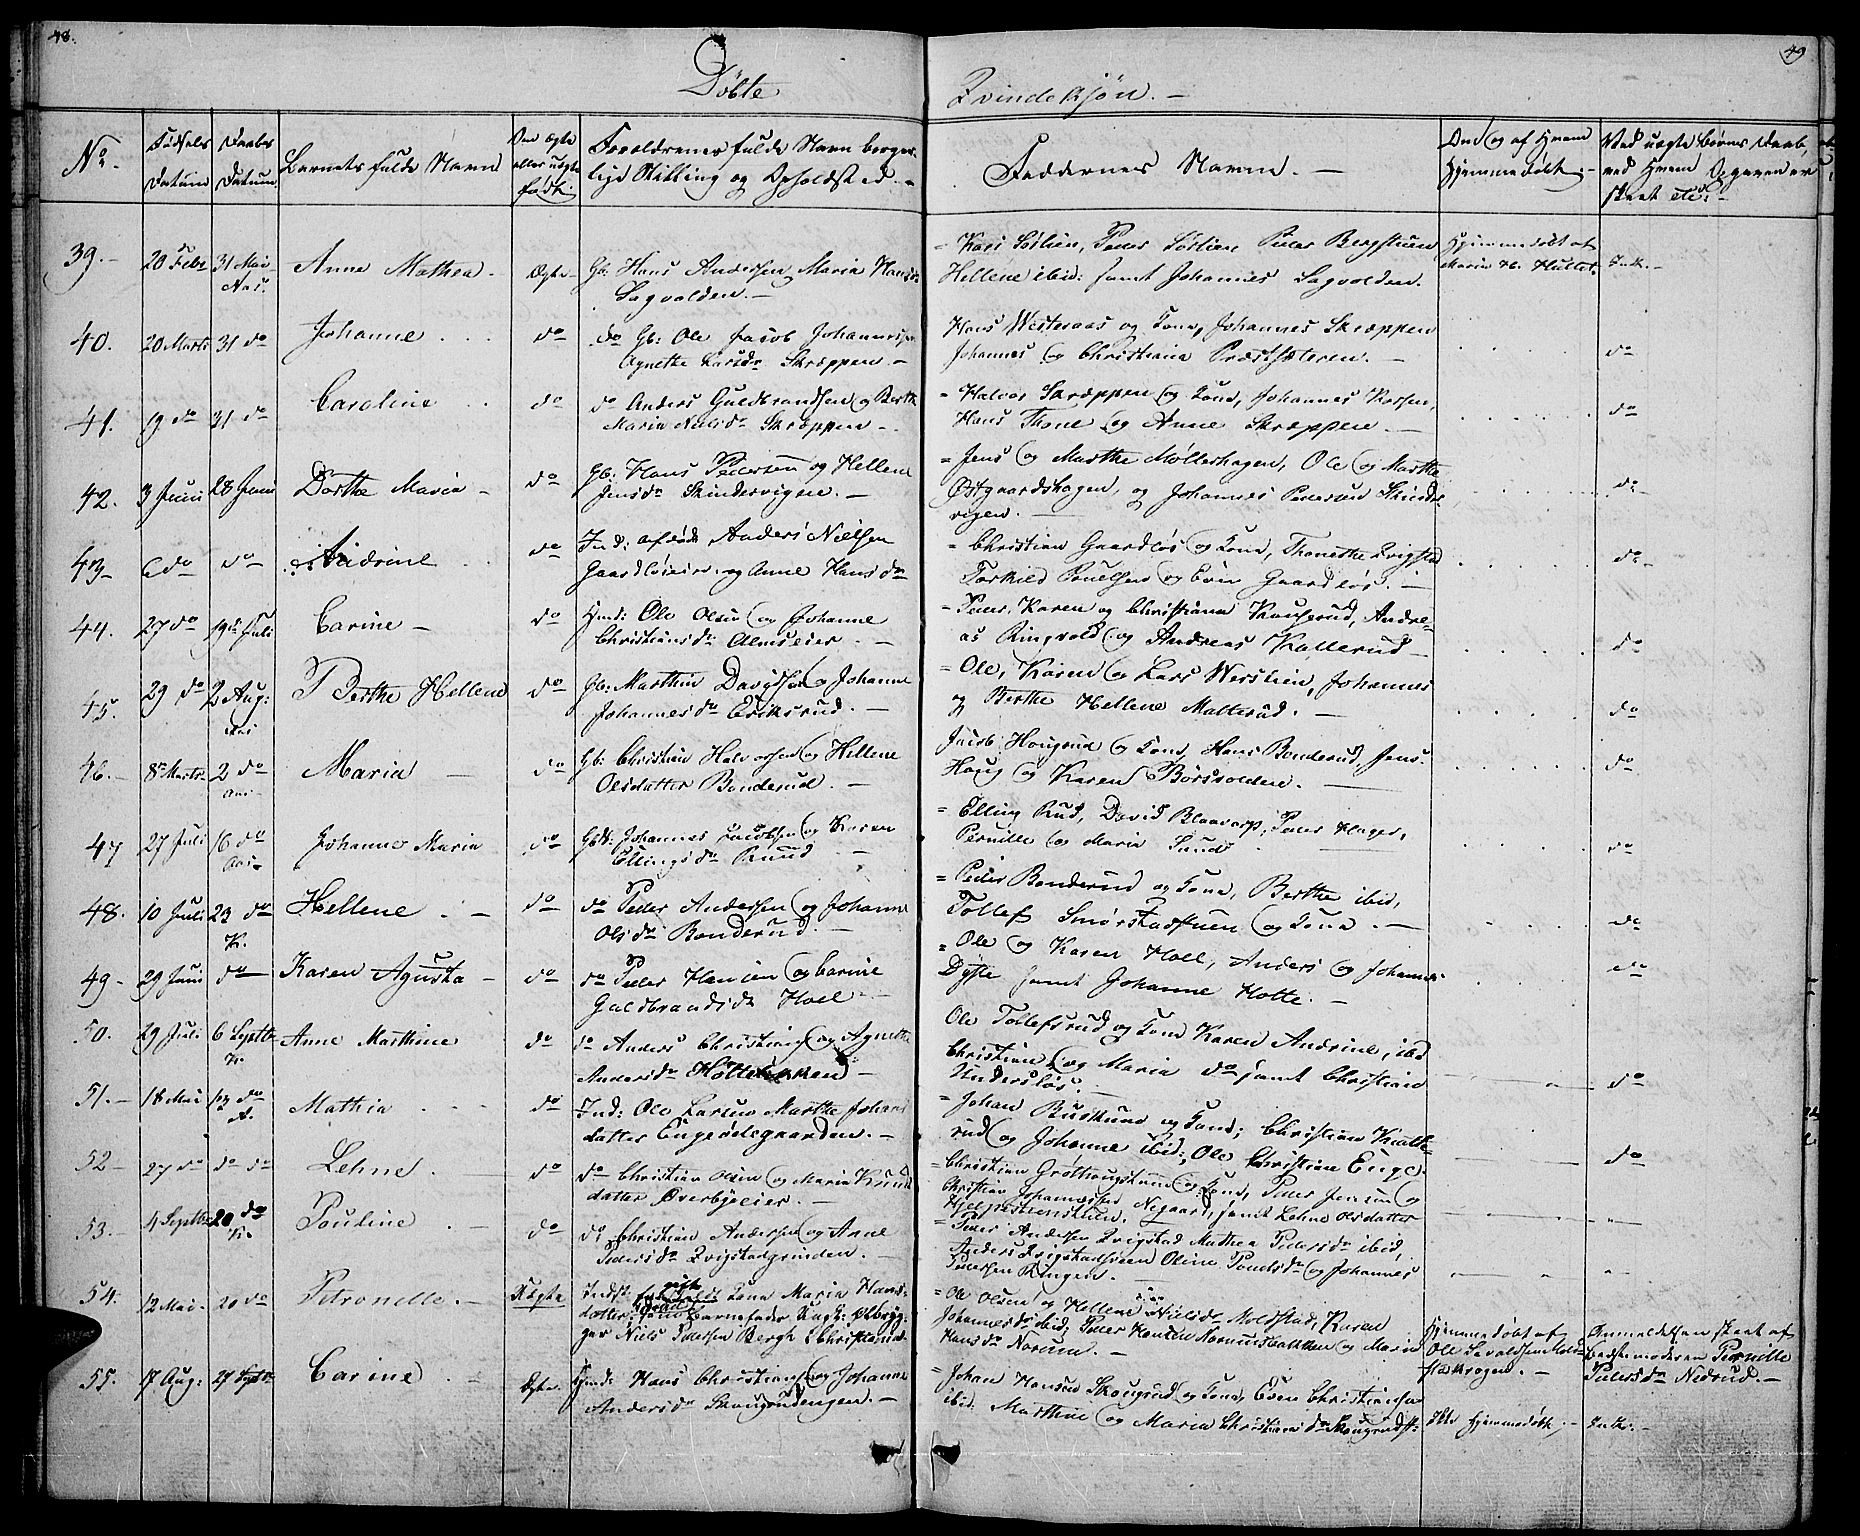 48.
49
Døbte
Qvindekjøn. -
No.
Fødsels Datum
Daabs Datum
Barnets fulde Navn
Om ægte eller uægte født.
Forældrenes fulde Navn borgerlige Stilling og Opholdsted. -
Faddernes Navne. -
Om og af hvem Hjemmedøbt. -
Ved uægte Børns Daab, ved hvem Opgaven er skeet etc: -
39. - 20 Febr 31 Mai Anne Mathea. Ægte Gb: Hans Andersen, Maria Hansd:
Sagvolden. -
= Kari Sørlien, Peder Sørlien Peder Bergstuen
Hellene ibid: samt Johannes Sagvolden.
Hjemmedøbt af
Maria H. Hullet.
40. 20 Marts 31 do Johanne . . . do do Gb: Ole Jacob Johannesen
Agnethe Larsdr Skreppen -
Hans Westeraas og Kone, Johannes Skreppen
Johannes og Christiana Præstsæteren. - do
41. 19 do 31 do Caroline . . do do Anders Guldbrandsen og Berthe
Maria Nielsdr Skreppen -
= Halvor Skreppen og Kone, Johannes Rossen,
Hans Thone og Anne Skreppen. - do
42. 3 Juni 28 Juni Dorthe Maria - do Gb: Hans Pedersen og Hellene
Jensdr Skindervigen. -
= Jens og Marthe Møllerhagen, Ole og Marthe
Østgaardshagen, og Johannes Pedersen Skinder-
vigen. - do
43 - 6 do do Andrine . . do Ind: Anders Nielsen
Gaardløseier og Anne Hansdr
= Christian Gaardløs og Kone, Thonethe Qvigstad
Torkild Poulsen og Even Gaardløs. - do
44. 27 do 19de Juli Carine - do Hmd: Ole Olsen og Johanne
Christiansdr Almseier. -
= Peder, Karen og Christiane Knuserud, Andre-
as Ringvold og Andreas Kallerud - do
45. 29 do 2 Aug: Berthe Hellene do Gb: Marthin Davidsen og Johanne
Johannesdr Eriksrud. -
= Ole, Karen og Lars Werstien, Johannes
og Berthe Hellene Malterud. - do
46. - 8de Marts 2 do Maria - do Gb: Christian Halvorsen og Hellene
Olsdatter Bonderud. -
Jacob Hougsrud og Kone Hans Bonderud, Jens
Houg og Karen Børsvolden. - do
47 27 Juli 16 do Johanne Maria do Gb: Johannes Jacobsen og Karen
Ellingsdr Ruud -
= Elling Rud, David Blaavarp, Peder Hager,
Pernille og Maria Sund . do
48. 10 Juli 23 do Hellene . - do do Peder Andersen og Johanne
K. Olsdr Bonderud. -
= Peder Bonderud og Kone, Berthe ibid,
Tollef Smørstadstuen og Kone. - do
49 - 29 Juni do Karen Agusta - do do Peder Hansen og Carine
Guldbrandsdr Hoel -
= Ole og Karen Hoel, Anders og Johannes
Dyste samt Johanne Holte. - do
50. 29 Juli 6 Septbr Anne Marthine do do Anders Christians og Agnethe
K. Andersdr Holtebakken -
Ole Tollefsrud og Kone Karen Andrine, ibd
Christian og Maria do samt Christian
Undersløs. - do
51. - 18 Mai 13 do Mathia . . . do Ind: Ole Larsen Marthe Johans
A. datter Engerødegaarden. -
= Johan Buskerud og Kone; Christian Kolle-
rud og Johanne ibid:, Ole Christian Enge. do
52 - 27 do do do Lehne . - do do Christian Olsen og Maria Knuds
datter Øverbyeier. -
= Christian Grøttungstuen og Kone, Peder Jensen og
Christian Johannessen Nygaard, samt Lehne Olsdatter
53. 4 Septbr 20 do Pouline . - do do Christian Andersen og Anne
K. Pedersdr Qvigstadgrinden. -
= Peder Andersen Qvigstad Mathea Pedersdr ibid,
Anders Qvigstadsveen Oline Poulsdr og Johannes
Pedersen Ringen. -
54. 12 Mai. 20 do Petronelle. - Uægte Indst. Kone Maria Hans-
datter: Barnefader Ungk: Ølbryg-
ger Niels Pedersen Bergh Christiania
= Ole Olsen og Hellene Nielsdr Moldstad, Karen
Johannesdr ibid, Peder Hansen Normundbakken og Maria
Hansdr Norum. -
Hjemmedøbt af
Ole Sevaldsen
Anmeldelsen skeet af
Bedstemoderen Pernille
Pedersdr Nedrud. -
55. 17 Aug: 27 Septbr Carine . - Ægte. Hmd: Hans Christiansen og Johanne
Andersdr Skougrudengen. -
= Johan Hansen Skougrud og Kone, Even Christiansen
ibid. Marthin og Maria Christiansdr Skougrud
Ikke Hjemmedøbt. - Intk: -